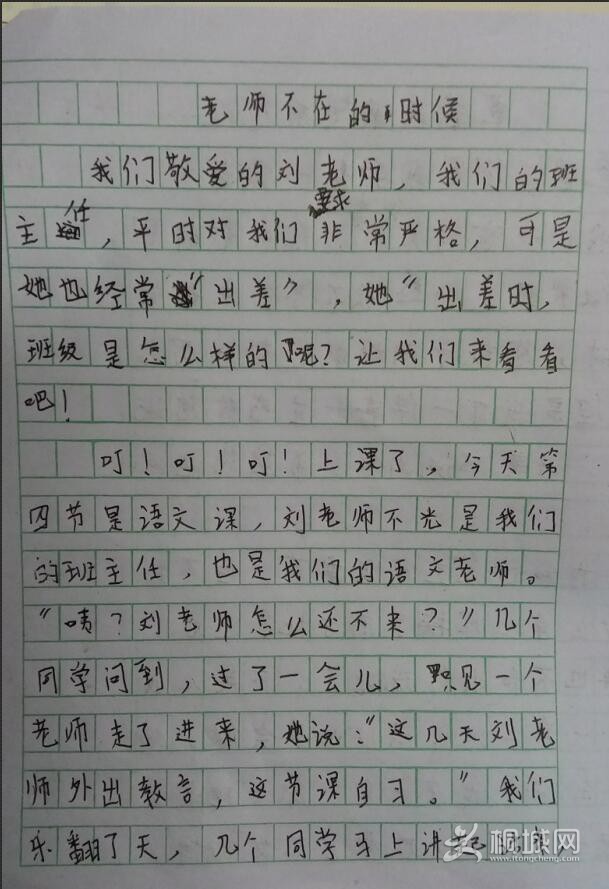 老师不在的时候
我们敬爱的刘老师，我们的班
主任，平时对我们要求非常严格，可是
她也经常“出差”，她“出差时，
班级是怎么样的呢？让我们来看看
吧！
叮！叮！叮！上课了，今天第
四节是语文课，刘老师不光是我们
的班主任，也是我们的语文老师。
“咦？刘老师怎么还不来？”几个
同学问到，过了一会儿，只见一个
老师走了进来，她说：“这几天刘老
师外出教言，这节课自习。”我们
乐翻了天，几个同学马上讲起
桐城网
www.itongcheng.com